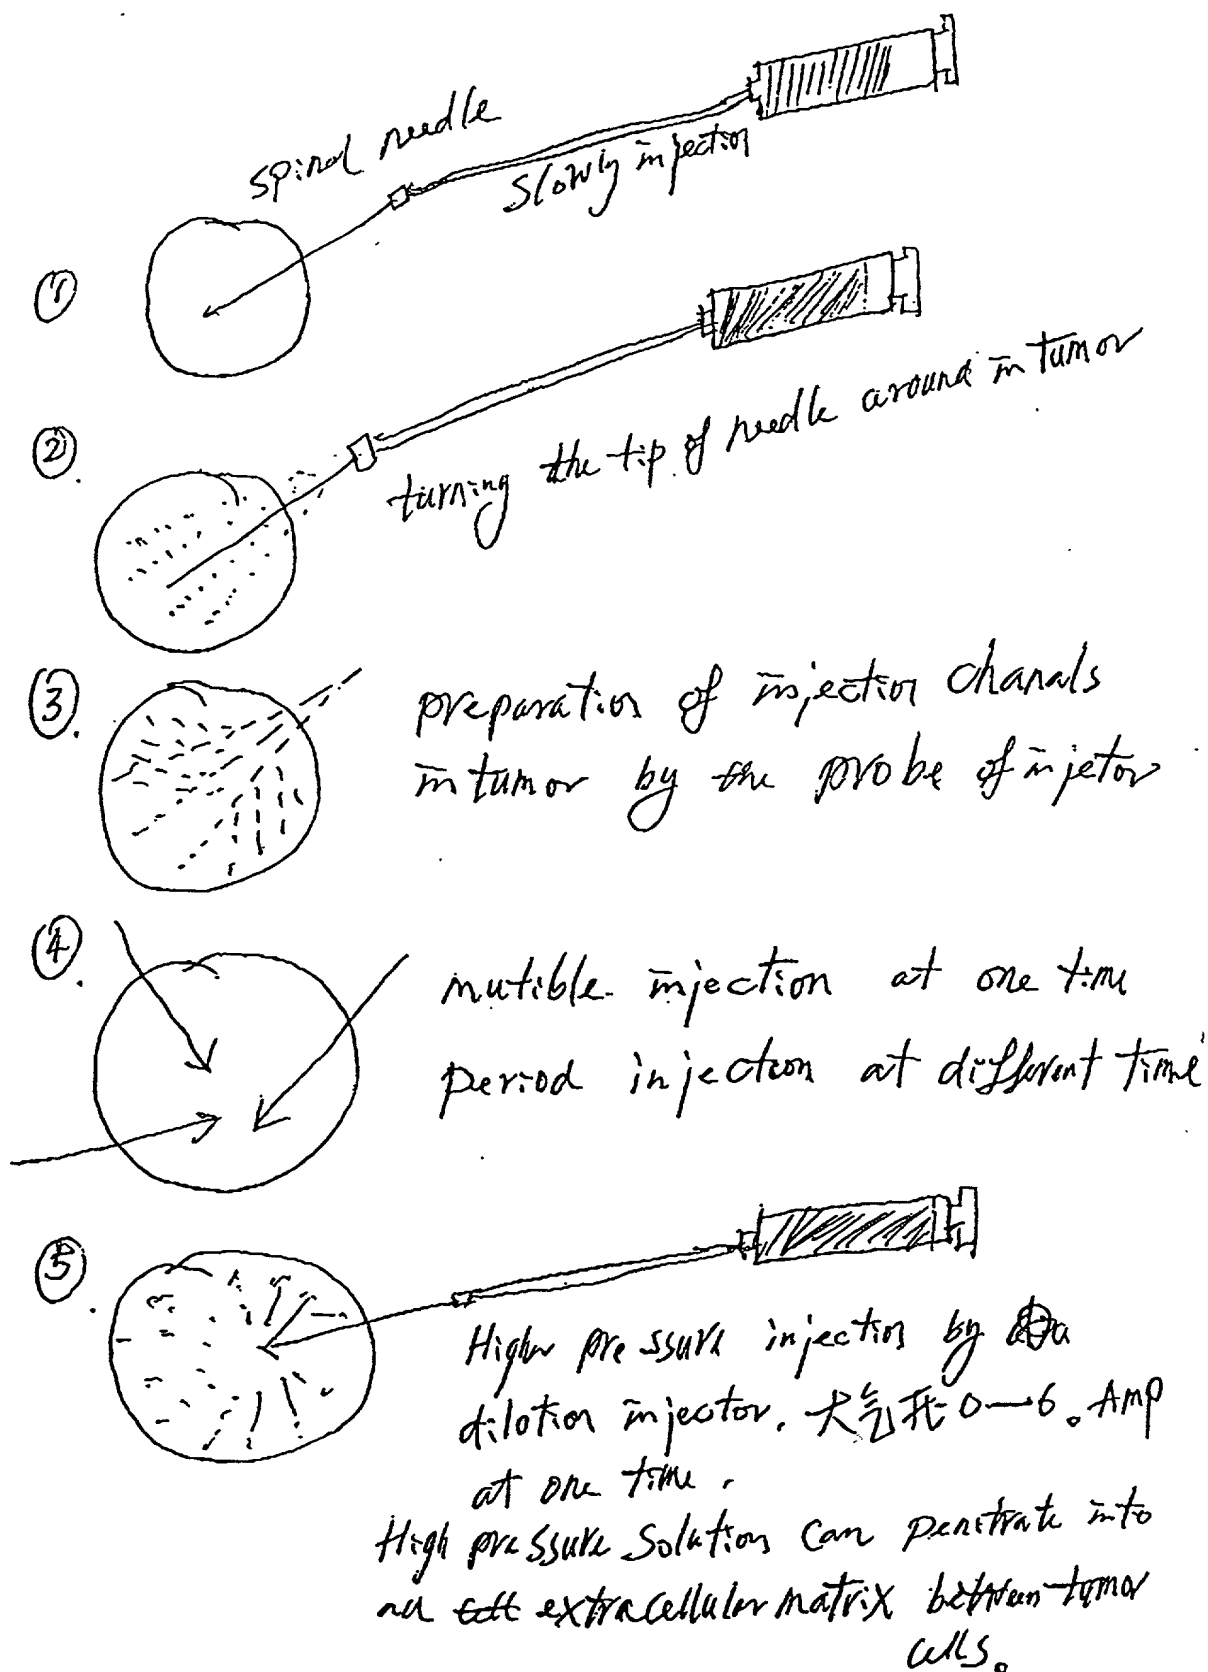 spinal needle
slowly injection
①
②.
turning the tip of needle around in tumor
③.
preparation of injection chanals
in tumor by the probe of injetor
④.
mutible injection at one time
period injection at different time
⑤.
High pressure injection by a
dilotion injector. 大气压 0—6。Amp
at one time.
High pressure solution can penitrate into
extracellular matrix between tumor
cells。